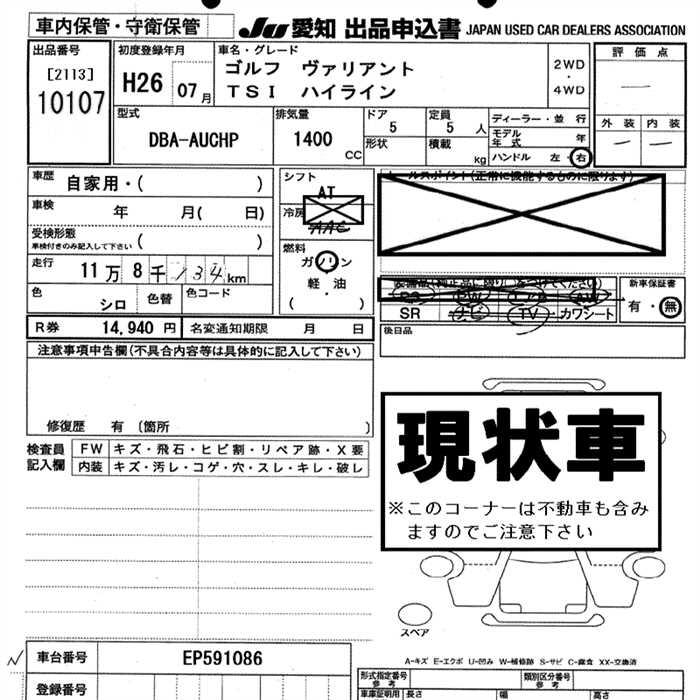 車内保管・守衛保管
JU 愛知 出品申込書 JAPAN USED CAR DEALERS ASSOCIATION
出品番号
[2113]
10107
初度登録年月
H26 07月
車名・グレード
ゴルフ ヴァリアント
TSI ハイライン
2WD
・
4WD
評価点
—
外装 内装
— —
型式
DBA-AUCHP
排気量
1400 CC
ドア
5
定員
5 人
形状
積載
kg
ディーラー・並行
モデル年式 年
ハンドル 左・右
車歴 自家用・( )
車検 年 月( 日)
受検形態
車検付きのみ記入して下さい ( )
走行 11万8千134km
色 シロ 色替 色コード
R券 14,940円 名変通知期限 月 日
シフト
AT
冷房
AAC
燃料
ガソリン
軽・油
( )
セールスポイント(正常に機能するものに限ります)
装備品(純正品に限り)○をつけてください
PS PW エアB AW
SR ナビ TV カワシート
新車保証書
有・無
後日品
注意事項申告欄(不具合内容等は具体的に記入して下さい)
修復歴 有 〔箇所 〕
検査員記入欄
FW キズ・飛石・ヒビ割・リペア跡・X要
内装 キズ・汚レ・コゲ・穴・スレ・キレ・破レ
現状車
※このコーナーは不動車も含み
ますのでご注意下さい
スペア
A-キズ E-エクボ U-凹み W-補修跡 S-サビ C-腐食 XX-交換済
車台番号 EP591086
登録番号
形式指定番号
参考
類別区分番号
参考
車庫証明用
長さ 幅 高さ